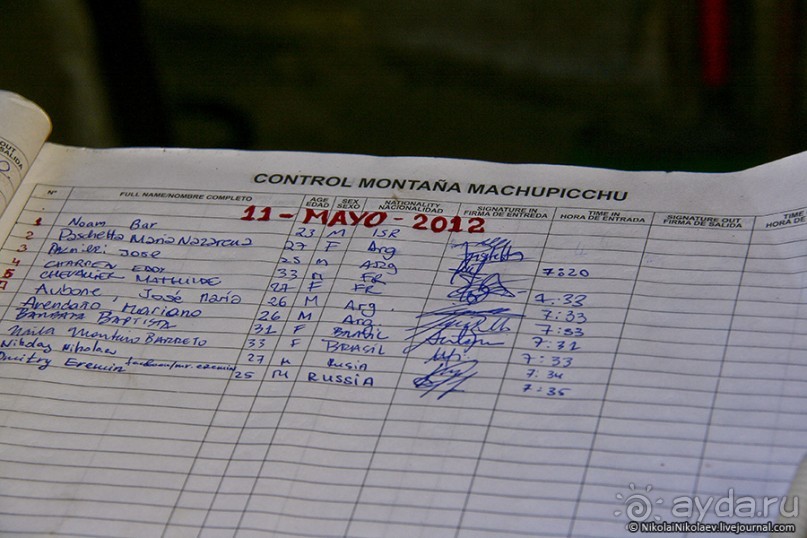 CONTROL MONTAÑA MACHUPICCHU
Nº FULL NAME/NOMBRE COMPLETO AGE EDAD SEX SEXO NATIONALITY NACIONALIDAD SIGNATURE IN FIRMA DE ENTREDA TIME IN HORA DE ENTRADA SIGNATURE OUT FIRMA DE SALIDA TIME HORA DE
11 - MAYO - 2012
1 Noam Bar 23 M ISR
2 Paschetta Maria Nazarena 27 F Arg
3 José 25 M Arg 7:20
4 CHARDEN EDDY 33 M FR
5 CHEVALIER MATHILDE 27 F FR 7:33
Aubone, José María 26 M Arg. 7:33
Arendaño Mariano 26 M Arg 7:33
BARBARA BAPTISTA 31 F BRASIL 7:31
Naila Monteiro BARRETO 33 F BRASIL 7:33
Nikolay Nikolaev 27 M Rusia 7:34
Dmitry Eremin 25 M RUSSIA 7:35
OUT
DE SALIDA
ayda.ru
©NikolaiNikolaev.livejournal.com